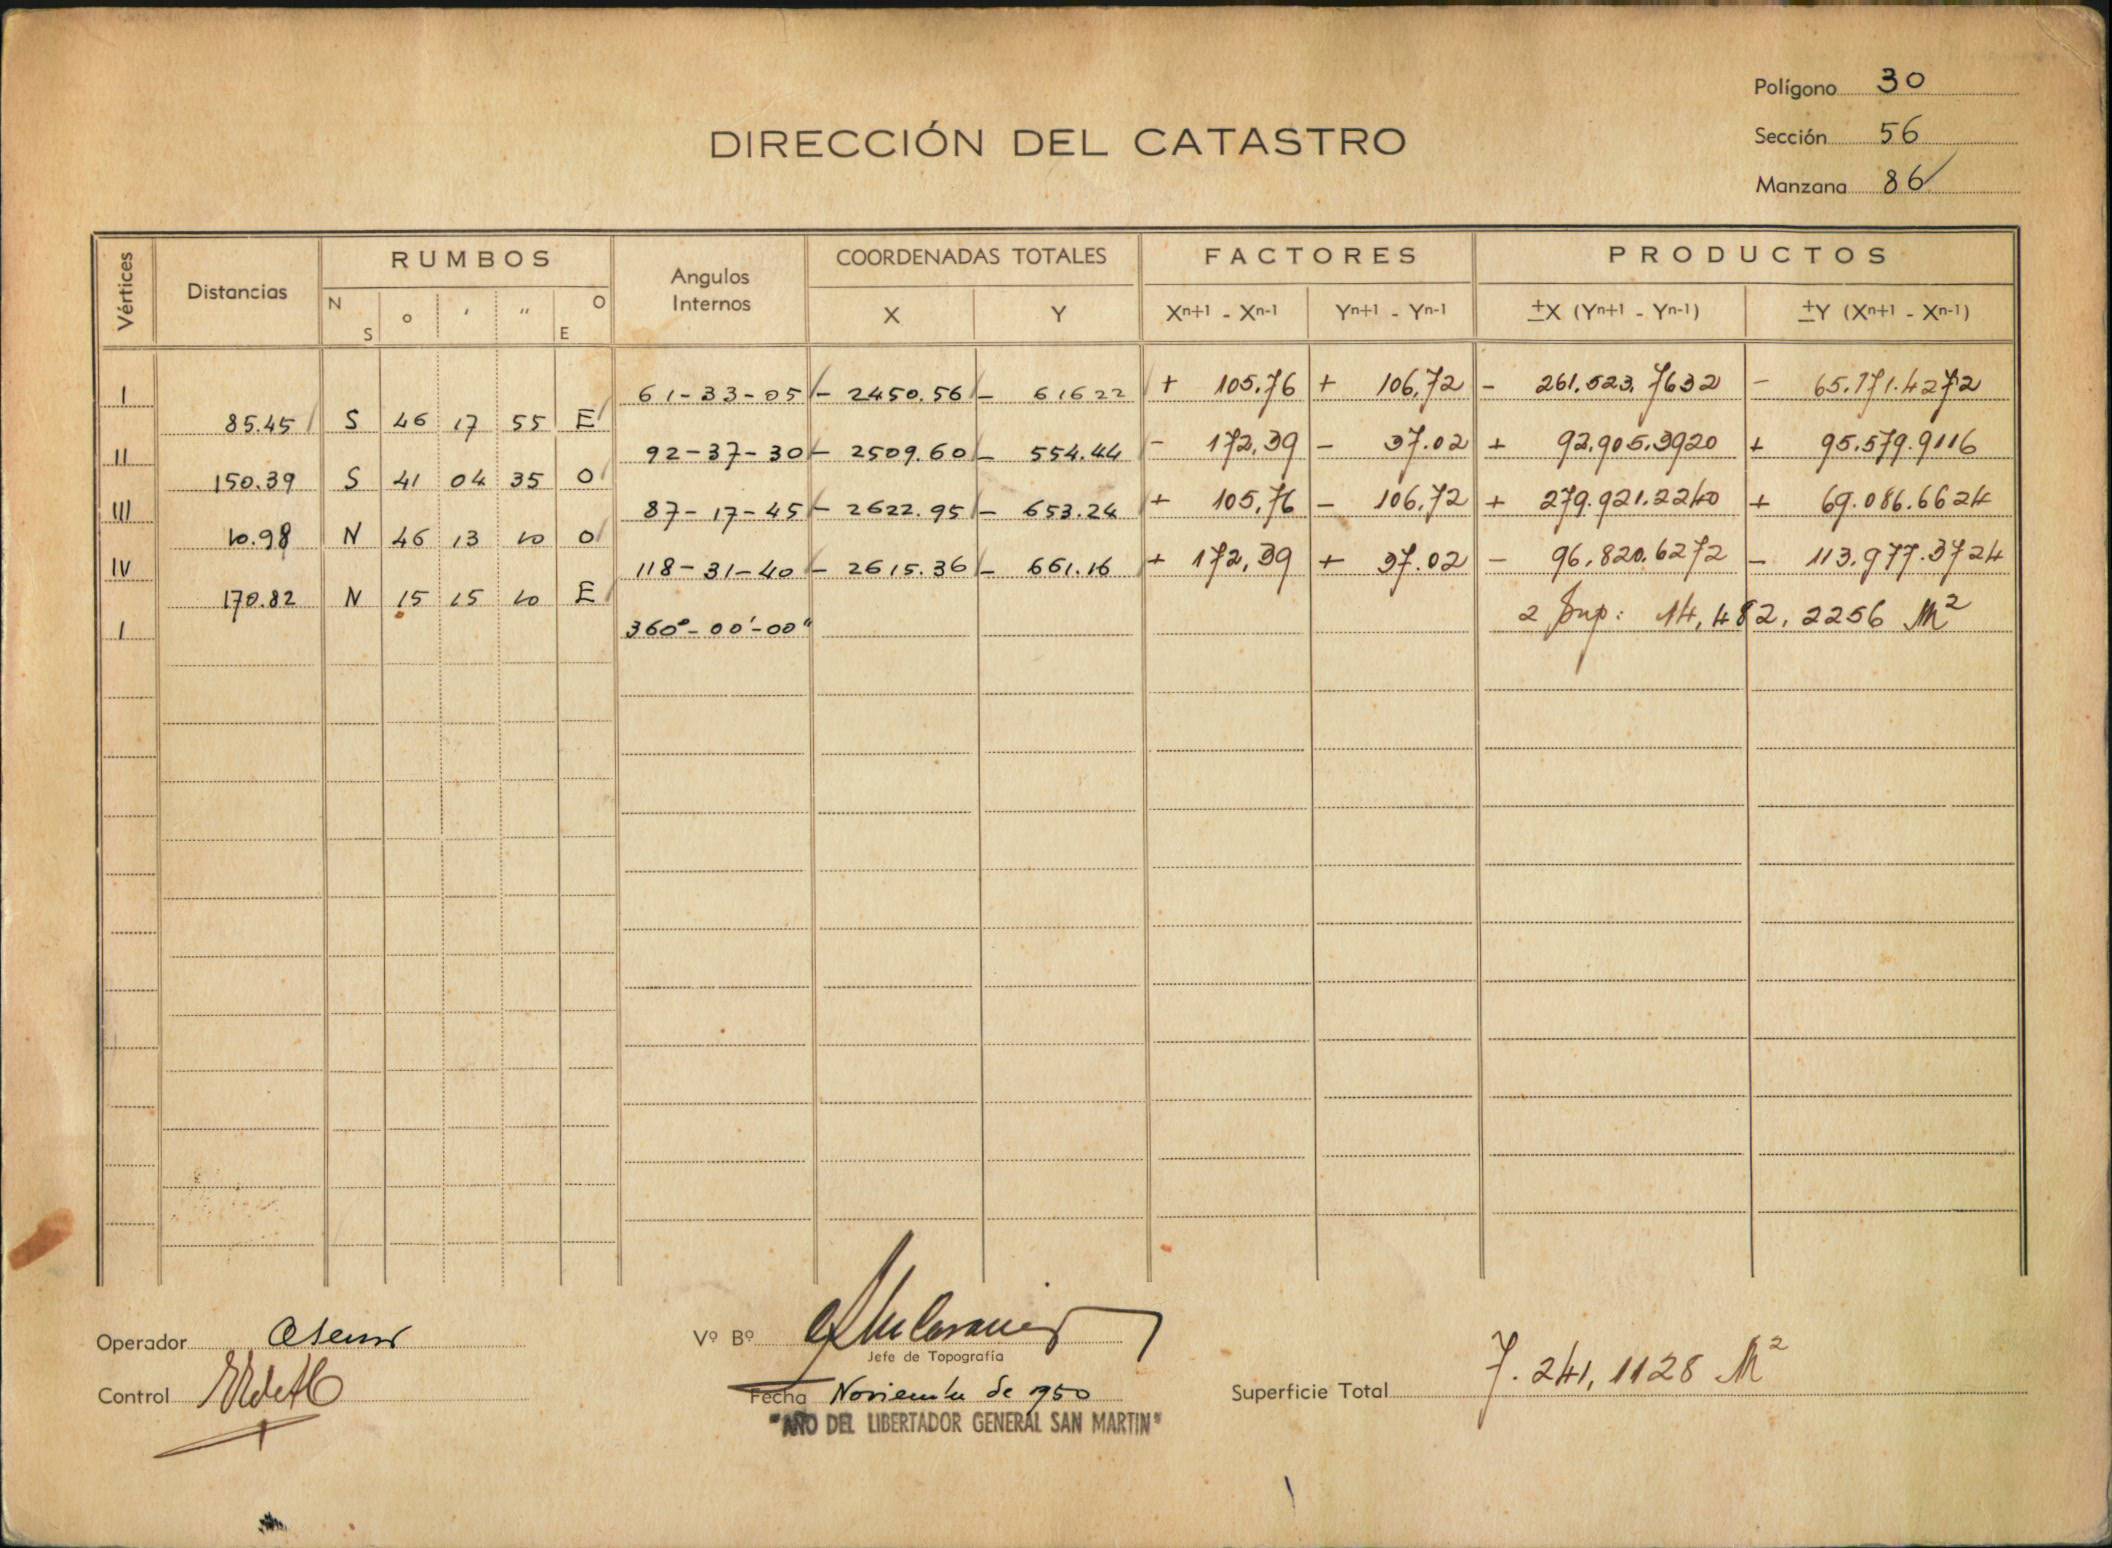 Polígono 30
DIRECCIÓN DEL CATASTRO
Sección 56
Manzana 86
Vértices Distancias RUMBOS Angulos Internos COORDENADAS TOTALES FACTORES PRODUCTOS
N S o ' '' O E X Y Xn+1 - Xn-1 Yn+1 - Yn-1 ±X (Yn+1 - Yn-1) ±Y (Xn+1 - Xn-1)
I 61-33-05 - 2450.56 - 616 22 + 105,76 + 106,72 - 261.523,7632 - 65.171.4272
85.45 S 46 17 55 E
II 92-37-30 - 2509.60 - 554.44 - 172,39 - 37.02 + 92.905.3920 + 95.579.9116
150.39 S 41 04 35 O
III 87-17-45 - 2622.95 - 653.24 + 105,76 - 106,72 + 279.921.2240 + 69.086.6624
10.98 N 46 13 10 O
IV 118-31-40 - 2615.36 - 661.16 + 172,39 + 37.02 - 96.820.6272 - 113.977.3724
170.82 N 15 15 10 E
I 360°-00'-00" 2 Sup: 14,482,2256 M²
Operador
Vº Bº
Jefe de Topografía
Control
Fecha Noviembre de 1950
Superficie Total 7.241,1128 M²
"AÑO DEL LIBERTADOR GENERAL SAN MARTIN"